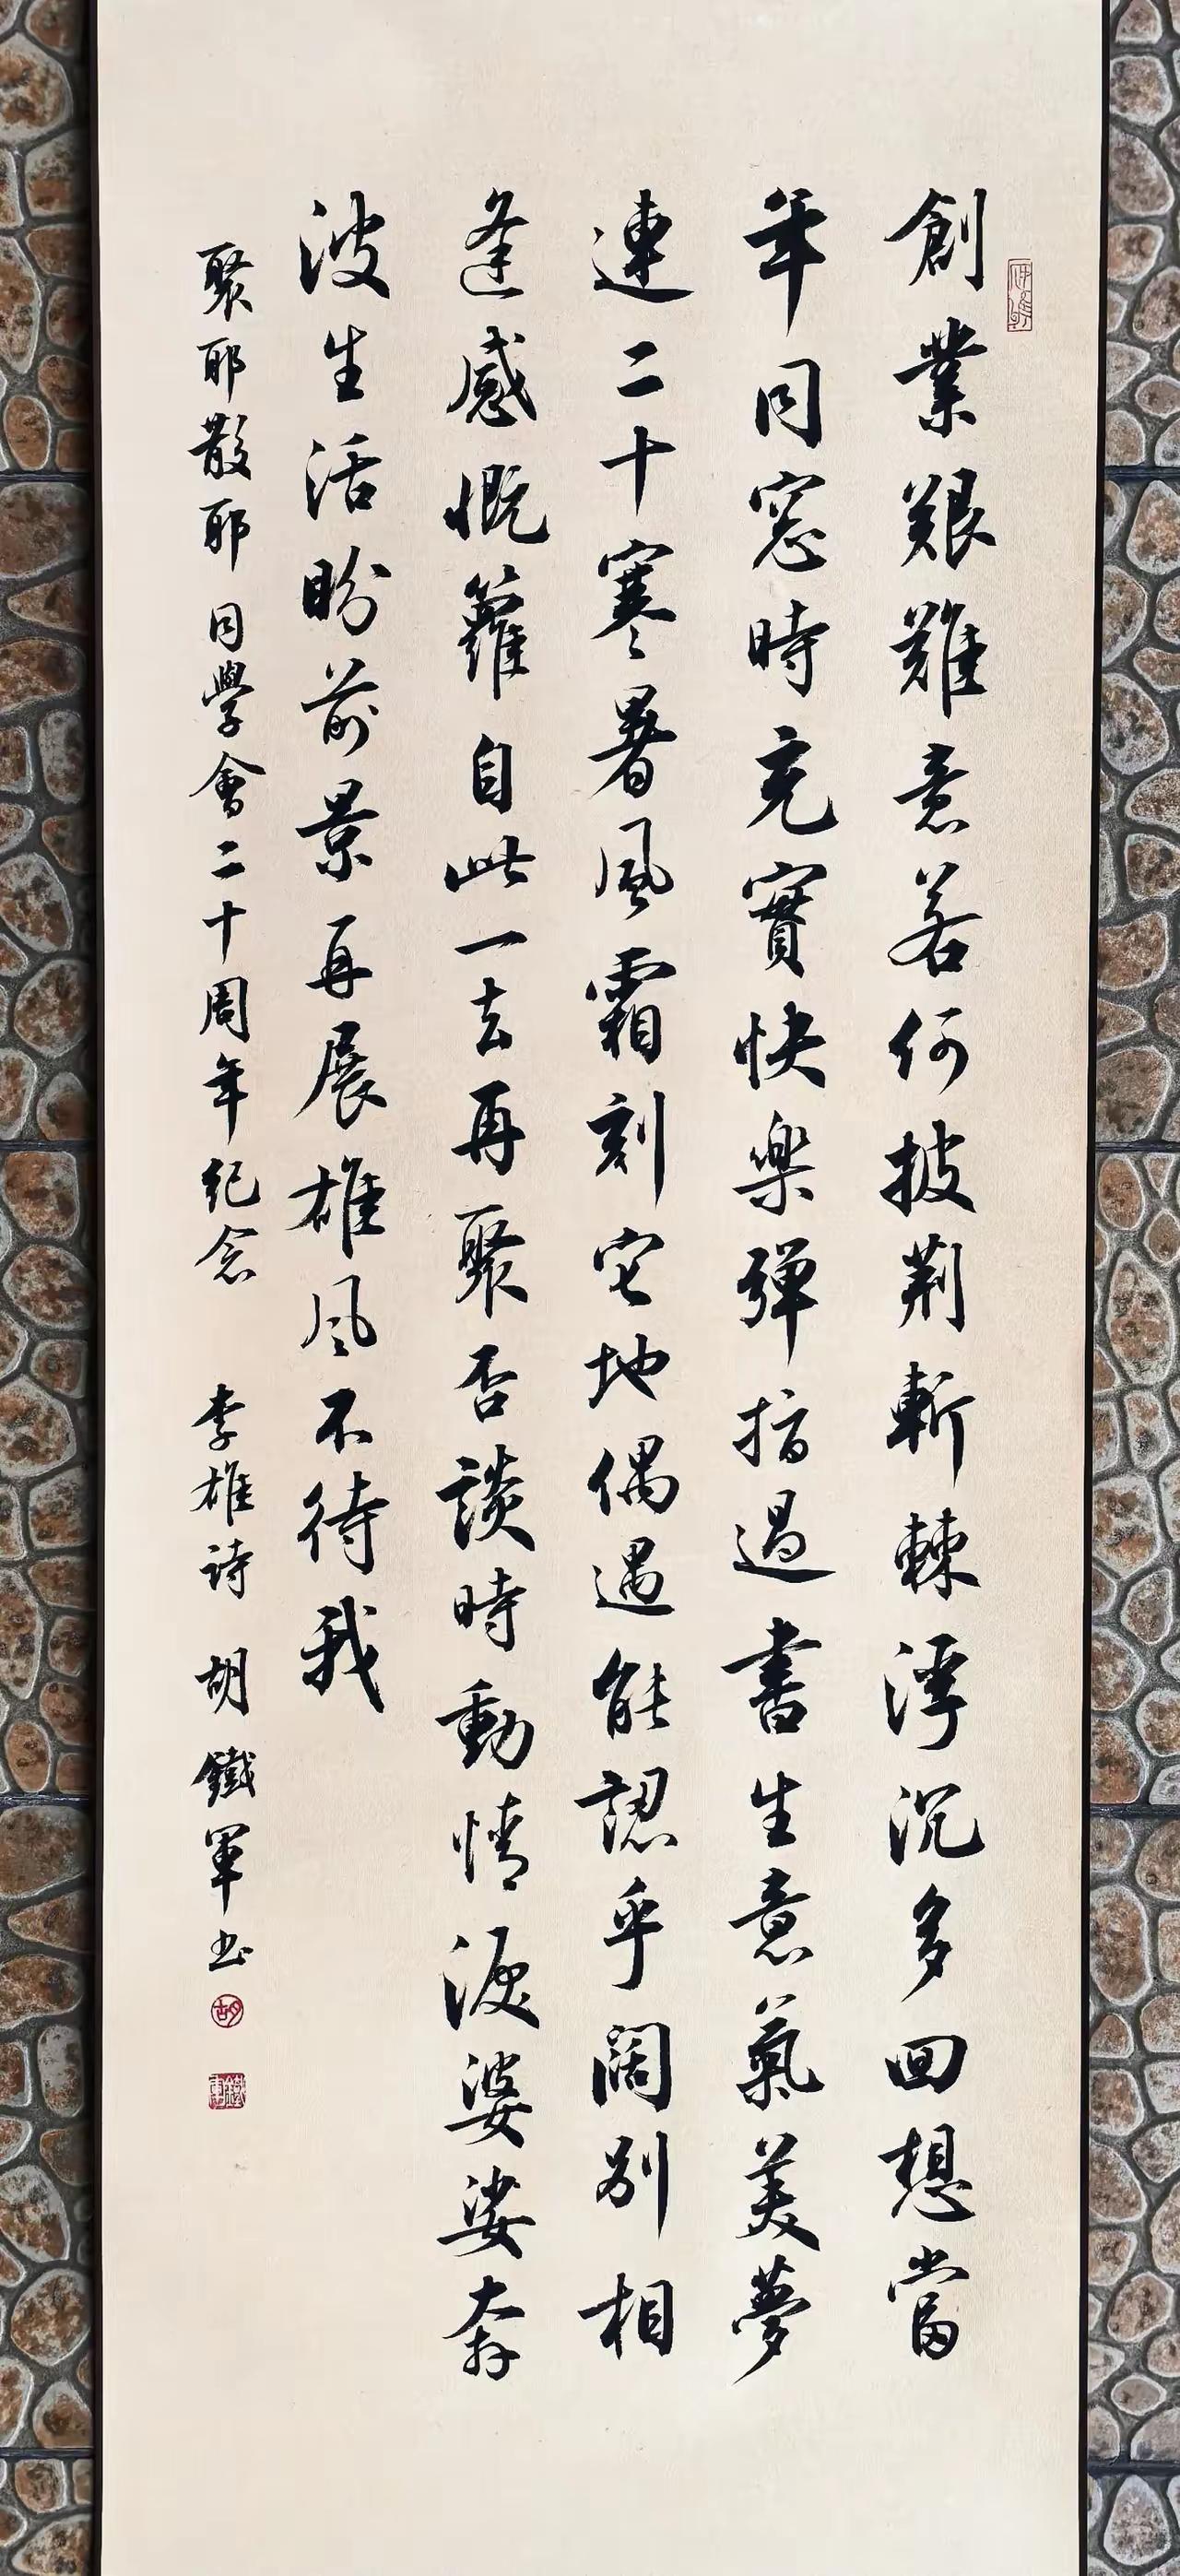 創業艱難意若何披荆斬棘浮沉多回想當
年同窓時充實快楽弹指過書生意氣美夢
連二十寒暑風霜刻它地偶遇能認乎阔别相
逢感慨籮自此一去再聚否談時動情淚婆娑奔
波生活盼前景再展雄风不待我
聚耶散耶 同學會二十周年紀念 李雄诗 胡鐵軍书
胡
鐵軍